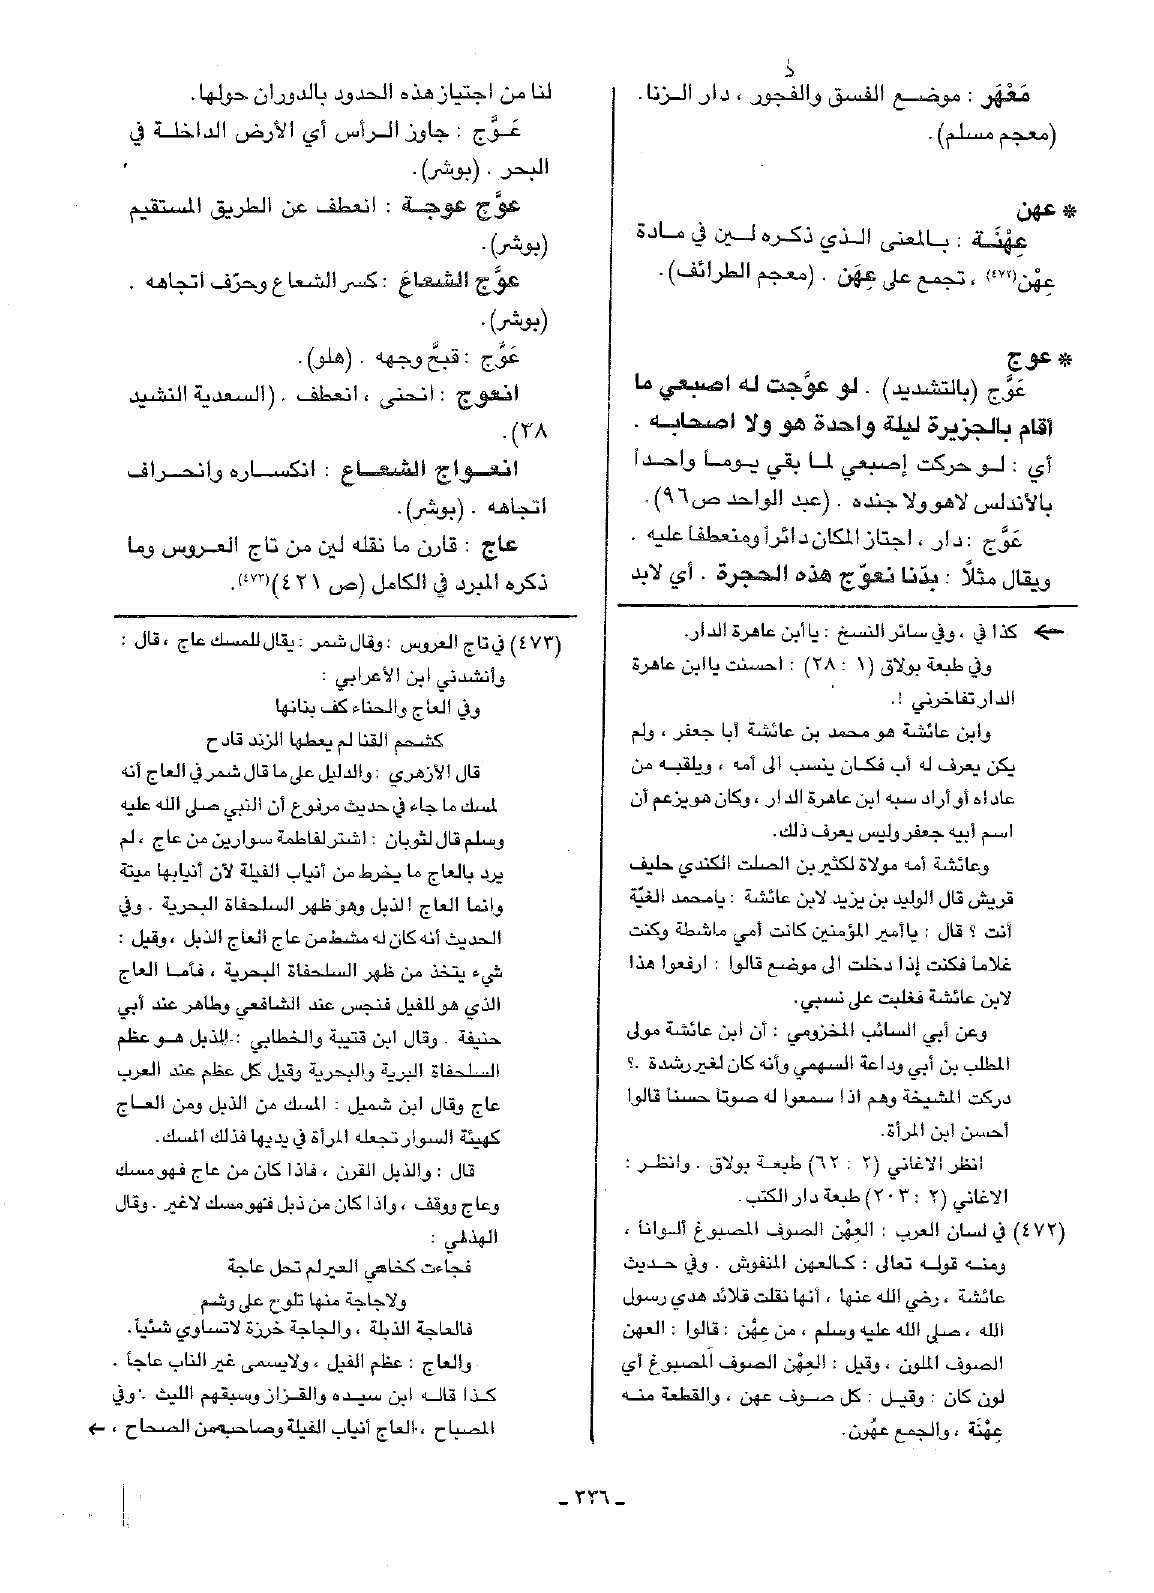 مَعْهَر : موضع الفسق والفجور ، دار الزنا.
(معجم مسلم).
* عهن
عِهْنَة : بالمعنى الذي ذكره لين في مادة
عِهْن(٤٧٢) ، تجمع على عِهَن . (معجم الطرائف).
* عوج
عَوَّج (بالتشديد) . لو عوَّجت له اصبعي ما
أقام بالجزيرة ليلة واحدة هو ولا اصحابه .
أي : لو حركت إصبعي لما بقي يوماً واحداً
بالأندلس لا هو ولا جنده . (عبد الواحد ص٩٦).
عَوَّج : دار ، اجتاز المكان دائراً ومنعطفاً عليه .
ويقال مثلاً : بدّنا نعوّج هذه الحجرة . أي لابد
لنا من اجتياز هذه الحدود بالدوران حولها.
عَوَّج : جاوز الرأس أي الأرض الداخلة في
البحر . (بوشر).
عوَّج عوجة : انعطف عن الطريق المستقيم
(بوشر).
عوَّج الشعاعَ : كسر الشعاع وحرّف اتجاهه .
(بوشر).
عَوَّج : قبحَّ وجهه . (هلو).
انعوج : انحنى ، انعطف . (السعدية النشيد
٣٨).
انعواج الشعاع : انكساره وانحراف
اتجاهه . (بوشر).
عاج : قارن ما نقله لين من تاج العروس وما
ذكره المبرد في الكامل (ص ٤٢١)(٤٧٣).
← كذا في ، وفي سائر النسخ : يا أبن عاهرة الدار.
وفي طبعة بولاق (١ : ٢٨) : احسنت يا ابن عاهرة
الدار تفاخرني !.
وابن عائشة هو محمد بن عائشة أبا جعفر ، ولم
يكن يعرف له أب فكان ينسب الى أمه ، ويلقبه من
عاداه أو أراد سبه ابن عاهرة الدار ، وكان هو يزعم أن
اسم أبيه جعفر وليس يعرف ذلك.
وعائشة أمه مولاة لكثير بن الصلت الكندي حليف
قريش قال الوليد بن يزيد لابن عائشة : يا محمد الغيّة
أنت ؟ قال : يا أمير المؤمنين كانت أمي ماشطة وكنت
غلاما فكنت إذا دخلت الى موضع قالوا : ارفعوا هذا
لابن عائشة فغلبت على نسبي.
وعن أبي السائب المخزومي : أن ابن عائشة مولى
المطلب بن أبي وداعة السهمي وأنه كان لغير رشدة .؟
دركت المشيخة وهم اذا سمعوا له صوتا حسنا قالوا
أحسن ابن المرأة.
انظر الاغاني (٢ : ٦٢) طبعة بولاق . وانظر :
الاغاني (٢ : ٢٠٣) طبعة دار الكتب.
(٤٧٢) في لسان العرب : العِهْن الصوف المصبوغ ألوانا ،
ومنه قوله تعالى : كالعهن المنفوش . وفي حديث
عائشة ، رضي الله عنها ، أنها نقلت قلائد هدي رسول
الله ، صلى الله عليه وسلم ، من عِهْن : قالوا : العهن
الصوف الملون ، وقيل : العِهْن الصوف المصبوغ أي
لون كان : وقيل : كل صوف عهن ، والقطعة منه
عِهْنَة ، والجمع عهُون.
(٤٧٣) في تاج العروس : وقال شمر : يقال للمسك عاج ، قال :
وأنشدني ابن الأعرابي :
وفي العاج والحناء كف بنانها
كشحم القنا لم يعطها الزند قادح
قال الأزهري : والدليل على ما قال شمر في العاج أنه
لمسك ما جاء في حديث مرفوع أن النبي صلى الله عليه
وسلم قال لثوبان : اشتر لفاطمة سوارين من عاج ، لم
يرد بالعاج ما يخرط من أنياب الفيلة لأن أنيابها ميتة
وانما العاج الذبل وهو ظهر السلحفاة البحرية . وفي
الحديث أنه كان له مشط من عاج العاج الذبل ، وقيل :
شيء يتخذ من ظهر السلحفاة البحرية ، فأما العاج
الذي هو للفيل فنجس عند الشافعي وطاهر عند أبي
حنيفة . وقال ابن قتيبة والخطابي : الذبل هو عظم
السلحفاة البرية والبحرية وقيل كل عظم عند العرب
عاج وقال ابن شميل : المسك من الذبل ومن العاج
كهيئة السوار تجعله المرأة في يديها فذلك المسك.
قال : والذبل القرن ، فاذا كان من عاج فهو مسك
وعاج ووقف ، واذا كان من ذبل فهو مسك لاغير . وقال
الهذلي :
فجاءت كخاهي العير لم تحل عاجة
ولا جاجة منها تلوح على وشم
فالعاجة الذبلة ، والجاجة خرزة لا تساوي شئياً.
والعاج : عظم الفيل ، ولايسمى غير الناب عاجاً .
كذا قاله ابن سيده والقزاز وسبقهم الليث . وفي
المصباح ، العاج أنياب الفيلة وصاحبه من الصحاح ، ←
ـ ٣٣٦ ـ